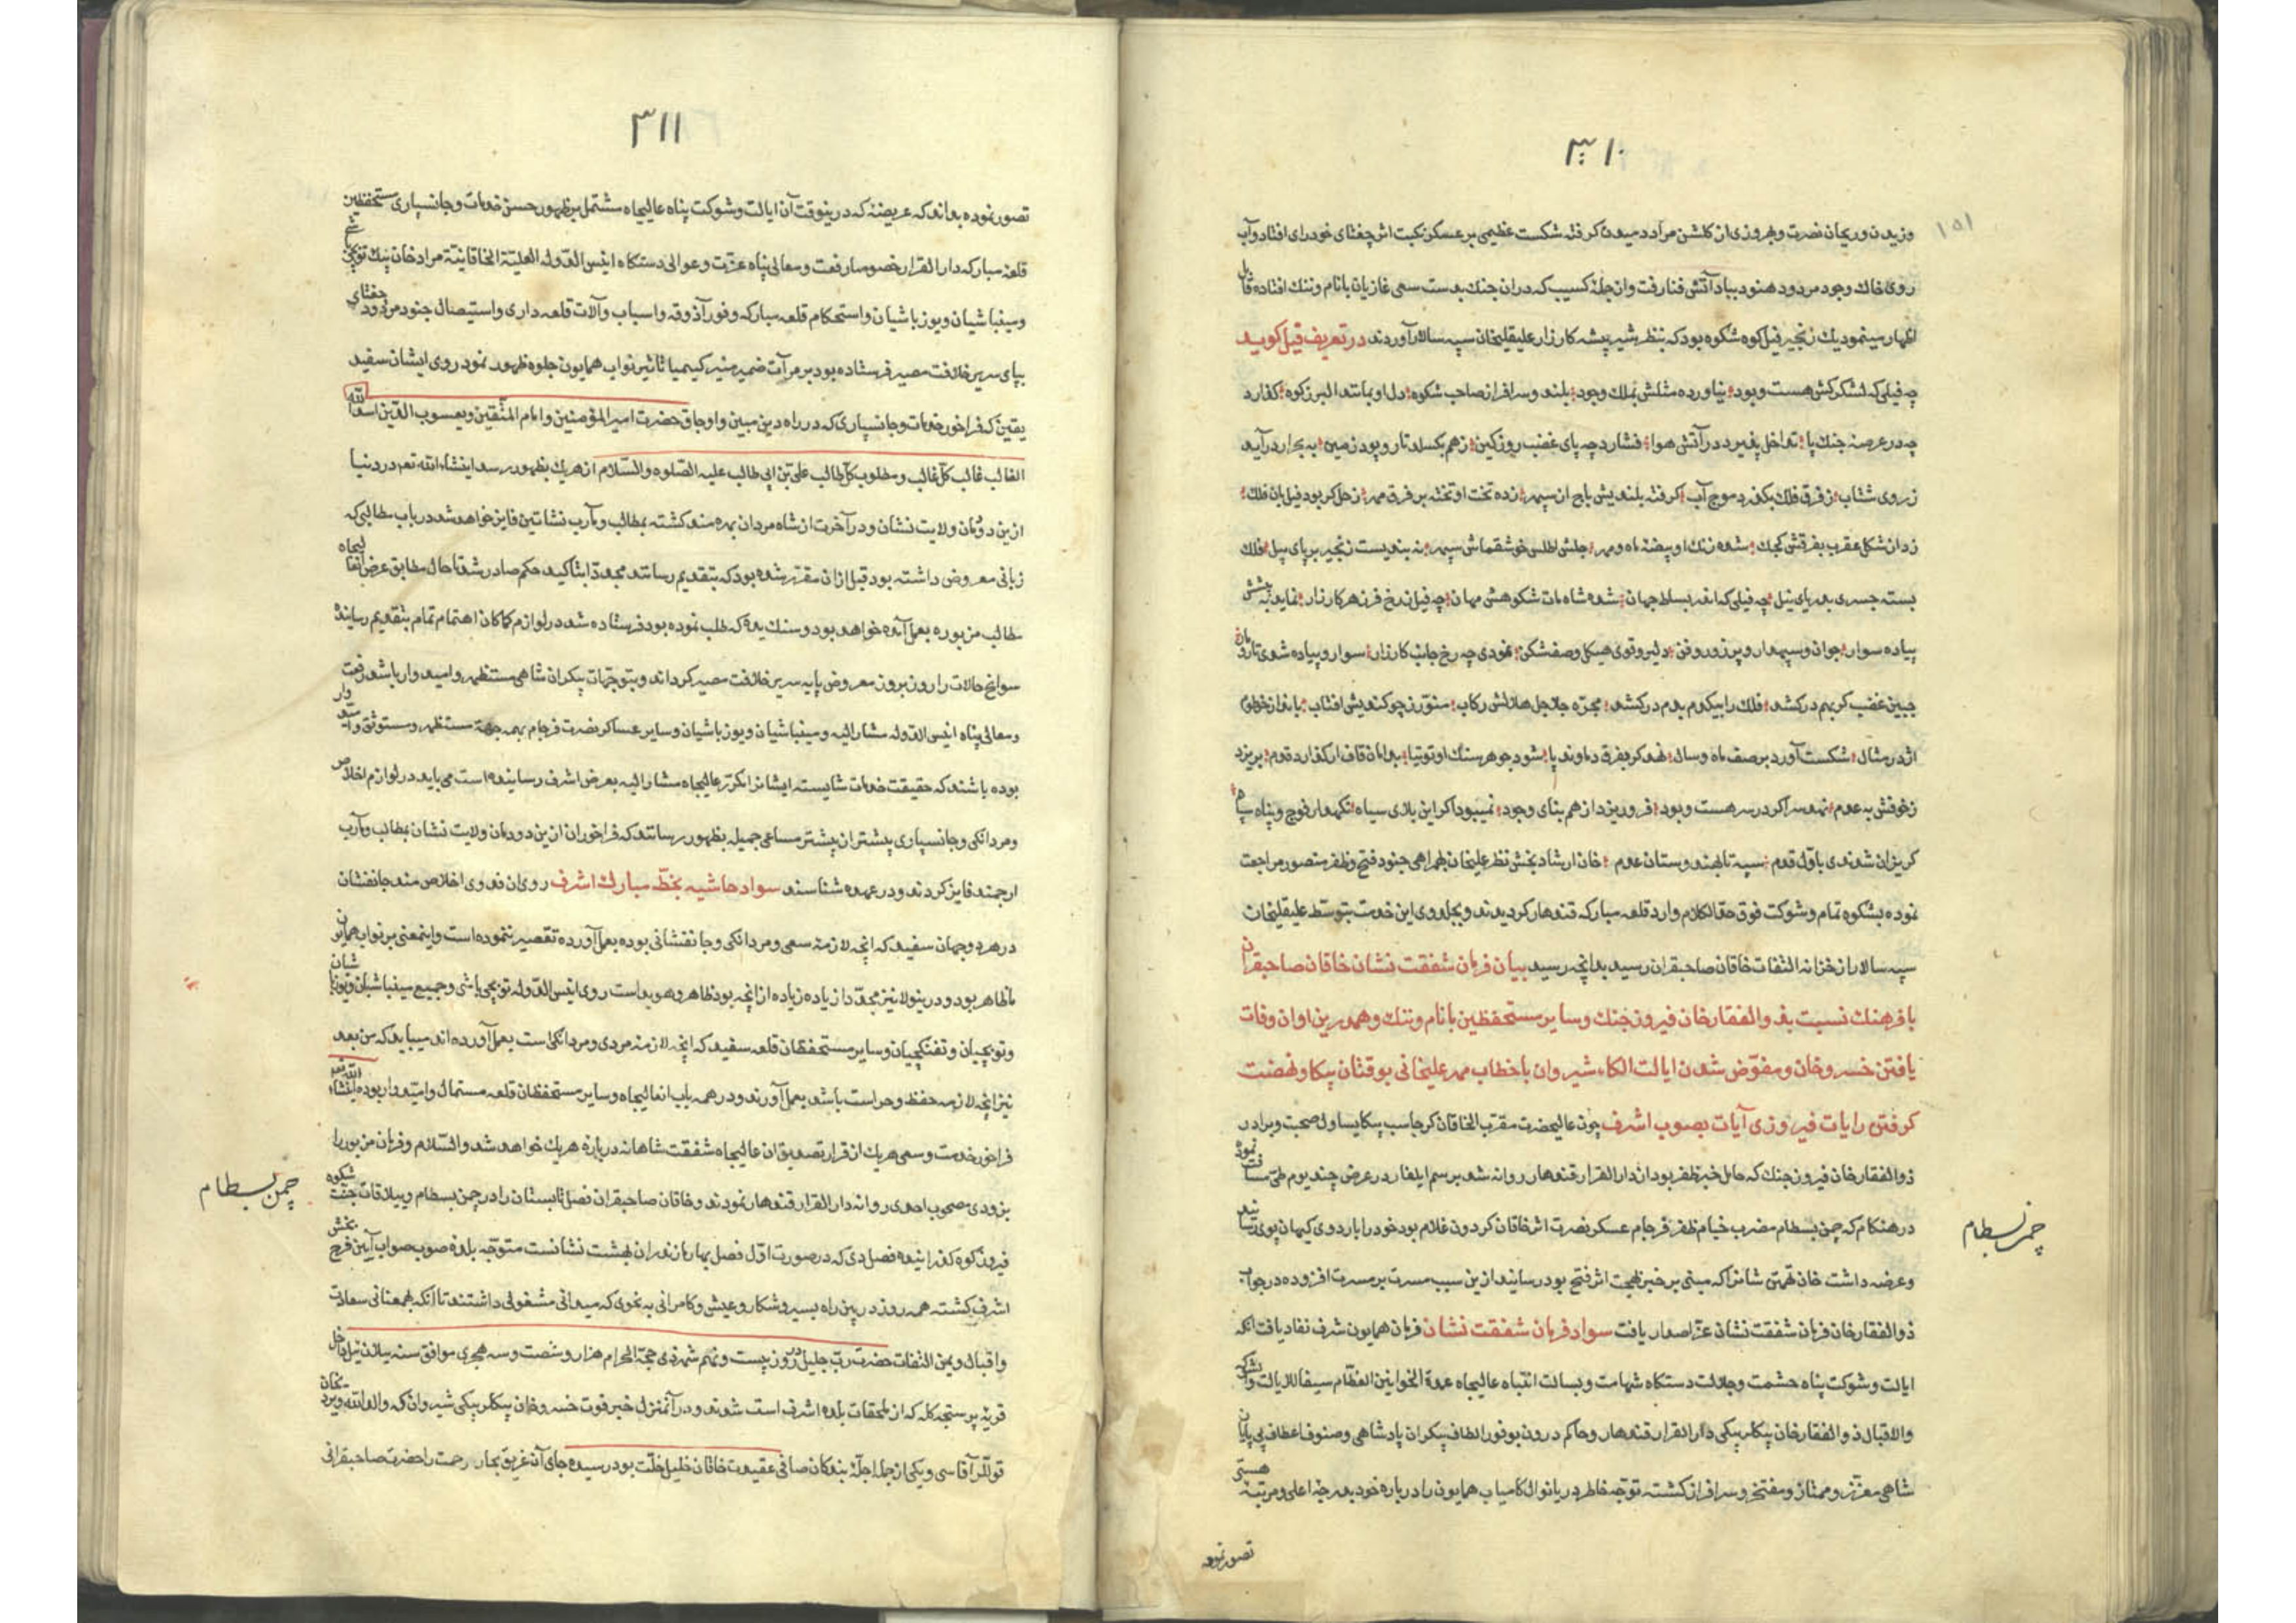 ۳۱۰
۱۵۱
وزیدن وریحان نصرت وبهروزی از گلشن مراد دمیدن گرفته شکست عظیمی بر عسکر نکبت اثر جغتای خودرای افتاد وآب
روی خاک وجود مردود هنود بباد آتش فنا رفت وان جمله کسیب که دران جنک بدست سعی غازیان بانام وننک افتاده قابل
اظهار مینمود یک زنجیر فیل کوه شکوه بود که بنظر شیر بیشه کارزار علیقلیخان سپه سالار آوردند در تعریف فیل گوید
چه فیلی که لشکرکش هست وبود نیاورده مثلش بملک وجود بلند وسرافراز صاحب شکوه دل او بمانند البرز کوه گذارد
چه در عرصه جنک پا تداخل پذیرد در آتش هوا فشارد چه پای غضب روز کین زهم بکسلد تار وپود زمین به بحرار درآید
ز روی شتاب ز فرق فلک بگذرد موج آب گرفته بلندیش باج از سپهر زده تخت او تخته بر فرق مهر زحل گر بود فیلبان فلک
زدان شکل عقرب بفرقش کجک شده زنک او بیضه ماه ومهر جلش اطلس خوشقماش سپهر نه بندیست زنجیر بر پای پیل فلک
بسته جسری بدریای نیل چه فیلی که اندر بساط جهان شده شاه مات شکوهش مهان چه فیل اندرخ فرزهر کارزار نماید به پیشش
پیاده سوار جوان وسپهدار وپر زور وفن دلیر وقوی هیکل وصف شکن نمودی چه رخ جانب کارزار سوار وپیاده شدی تارومان
جبین غضب گر بهم درکشد فلک را بیکدم بدم درکشد مجره جلاجل هلالش رکاب منور زچوکندیش افتاب
اژدر مثال شکست آورد بر صف ماه وسال نهد گر بفرق دماوند پا شود جوهر سنک او توتیا بدامان قاف ار گذارد قدم بریزد
زخوفش به عدم نهد سر اگر در سر هست وبود فرو ریزد از هم بنای وجود نمیبود اگر این بلای سیاه نکهدار فوج وپناه سپاه
گریزان شدندی باول قدم سپه تا بهندوستان عدم خان ارشاد بخش نظر علیخان بهمراهی جنود فتح وظفر منصور مراجعت
نموده بشکوه تمام وشوکت فوق حد الکلام وارد قلعه مبارکه قندهار گردیدند وبجلدوی این خدمت بتوسط علیقلیخان
سپه سالار از خزانه التفات خاقان صاحبقران رسید بدانچه رسید بیان فرمان شفقت نشان خاقان صاحبقران
با فرهنک نسبت بذوالفقار خان فیروز جنک وسایر مستحفظین بانام وننک وهمدرین اوان وفات
یافتن خسرو خان ومفوض شدن ایالت الکاء شیروان باخطاب مهر علیخانی بوقتان بیکا ونهضت
گرفتن رایات فیروزی آیات بصوب اشرف چون عالیحضرت مقرب الخاقان گرجاسب بیکا یساول صحبت وبرادر
ذوالفقار خان فیروز جنک که حامل خبر ظفر بود از دارالقرار قندهار روانه شد برسم ایلغار در عرض چند یوم طی مسافت نموده
در هنکام که چمن بسطام مضرب خیام ظفر فرجام عسکر نصرت اثر خاقان گردون غلام بود خود را باردوی کیهان پوی رسانید
وعرضه داشت خان تهمتن شانرا که مبنی بر خبر بهجت اثر فتح بود رسانید ازین سبب مسرت بر مسرت افزوده در جواب
ذوالفقار خان فرمان شفقت نشان عز اصدار یافت سواد فرمان شفقت نشان فرمان همایون شرف نفاد یافت آنکه
ایالت وشوکت پناه حشمت وجلالت دستکاه شهامت وبسالت انتباه عالیجاه عمدة الخوانین العظام سیفا للایالت والشوکه
والاقبال ذوالفقار خان بیکلربیکی دارالقرار قندهار وحاکم درون بوفور الطاف بیکران پادشاهی وصنوف اعطاف بی پایان
شاهی معزز وممتاز ومفتخر وسرافراز گشته توجه خاطر دریا نوال کامیاب همایون را درباره خود بدرجه اعلی ومرتبه هستی
تصور نموده
چمن بسطام
۳۱۱
تصور نموده بداند که عریضه که درینوقت آن ایالت وشوکت پناه عالیجاه مشتمل بر ظهور حسن خدمات وجانسپاری مستحفظین
قلعه مبارکه دارالقرار خصوصا رفعت ومعالی پناه عزت وعوالی دستکاه انیس الدوله العلیة الخاقانیة مراد خان بیک توپچی
ومینباشیان ویوزباشیان واستحکام قلعه مبارکه وفور آذوقه واسباب وآلات قلعه داری واستیصال جنود مردود جغتای
بپای سریر خلافت مصیر فرستاده بود بر مرآت ضمیر منیر کیمیا تاثیر نواب همایون جلوه ظهور نمود روی ایشان سفید
یقین که فراخور خدمات وجانسپاری که در راه دین مبین واوجاق حضرت امیرالمؤمنین وامام المتقین ویعسوب الدین اسد الله
الغالب غالب کل غالب ومطلوب کل طالب علی بن ابی طالب علیه الصلوه والسلام از هریک بظهور رسد انشاء الله تعم در دنیا
ازین دودمان ولایت نشان ودر آخرت از شاه مردان بهره مند گشته بمطالب ومآرب نشاتین فایز خواهد شد در باب مطالبی که
زبانی معروض داشته بود قبل ازان مقرر شده بود که بتقدیم رسانند مجددا بتاکید حکم صادر شد تا حال مطابق عرض انعالیجاه
مطالب مزبوره بعمل آمده خواهد بود وسنک یده که طلب نموده بود فرستاده شد در لوازم کماکان اهتمام تمام بتقدیم رسانیده
سوانح حالات را روز بروز معروض پایه سریر خلافت مصیر گرداند وبتوجهات بیکران شاهی مستظهر وامیدوار باشد رفعت
ومعالی پناه انیس الدوله مشارالیه ومینباشیان ویوزباشیان وسایر عساکر نصرت فرجام بهمه جهة مستظهر ومستوثق وامیدوار
بوده باشند که حقیقت خدمات شایسته ایشانرا مکرر عالیجاه مشارالیه بعرض اشرف رسانیده است می باید در لوازم اخلاص
ومردانکی وجانسپاری بیشتر از پیشتر مساعی جمیله بظهور رسانند که فراخور ان ازین دودمان ولایت نشان بمطالب ومآرب
ارجمند فایز گردند ودر عهده شناسند سواد حاشیه بخط مبارک اشرف روی ان فدوی اخلاص مند جانفشان
در هر دو جهان سفید که انچه لازمه سعی ومردانکی وجانفشانی بوده بعمل آورده تقصیر ننموده است واینمعنی بر نواب همایون
ما ظاهر بود ودرینولا نیز مجددا زیاده زیاده از انچه بود ظاهر وهویداست روی انیس الدوله توپچی باشی وجمیع مینباشیان ویوزباشیان
وتوپچیان وتفنکچیان وسایر مستحفظان قلعه سفید که انچه لازمه مردی ومردانکی است بعمل آورده اند میباید که من بعد
نیز انچه لازمه حفظ وحراست باشد بعمل آورند ودر همه باب انعالیجاه وسایر مستحفظان قلعه مستمال وامیدوار بوده انشاء الله تعه
فراخور خدمت وسعی هریک از قرار تصدیق ان عالیجاه شفقت شاهانه درباره هریک خواهد شد والسلام وفرمان مزبور را
بزودی مصحوب احدی روانه دارالقرار قندهار نمودند وخاقان صاحبقران فصل تابستان را در چمن بسطام وییلاقات جنت شکوه
فیروزکوه گذرانیده فصل دی که در صورت اول فصل بهار مازندران بهشت نشانست متوجه بلده صوب صواب آیین فرح بخش
اشرف گشته همه روز در بین راه بسیر وشکار وعیش وکامرانی به نحوی که میدانی مشغولی داشتند تا آنکه بهمعنانی سعادت
واقبال ویمن التفات حضرت رب جلیل در روز بیست ونهم شهر ذی حجة الحرام هزار وشصت وسه هجری موافق سنه ییلان ئیل داخل
قریه پرستجه کله که از ملحقات بلده اشرف است شدند ودر آنمنزل خبر فوت خسرو خان بیکلربیکی شیروان که والد الله ویردیخان
قوللر آقاسی ویکی از جمله اجله بندکان صافی عقیدت خاقان خلیل خلت بود رسیده جای آن غریق بحار رحمت را حضرت صاحبقرانی
چمن بسطام